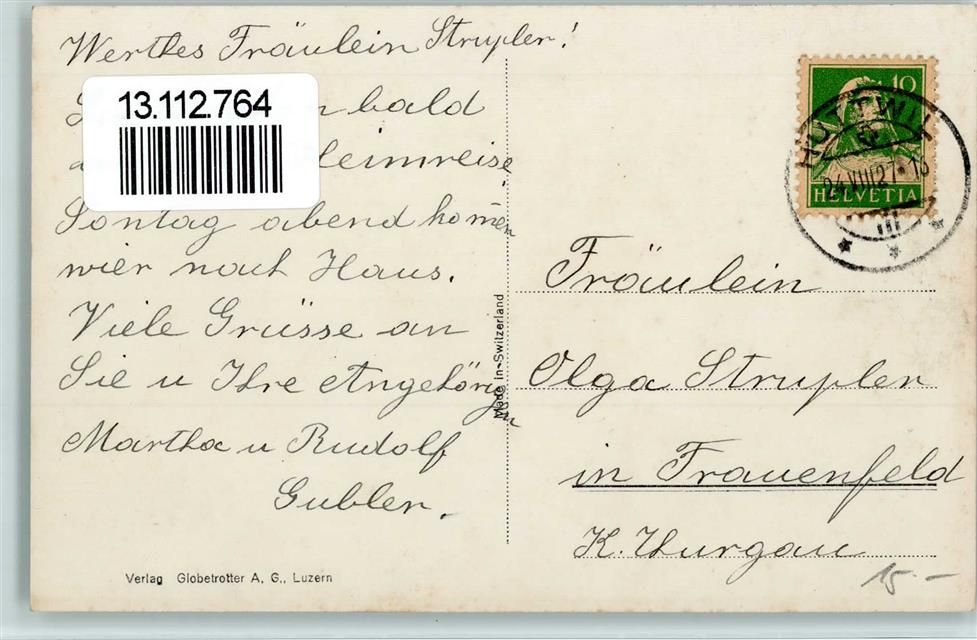 Werthes Fräulein Strupler!
13.112.764
bald
Sontag abend komen
wier nach Haus.
Viele Grüsse an
Sie u Ihre Angehörigen
Martha u Rudolf
Gubler.
Verlag Globetrotter A. G., Luzern
Made in Switzerland
10
HELVETIA
HUTTWIL
24.VIII.27-18
III
Fräulein
Olga Strupler
in Frauenfeld
K. Thurgau
15.-